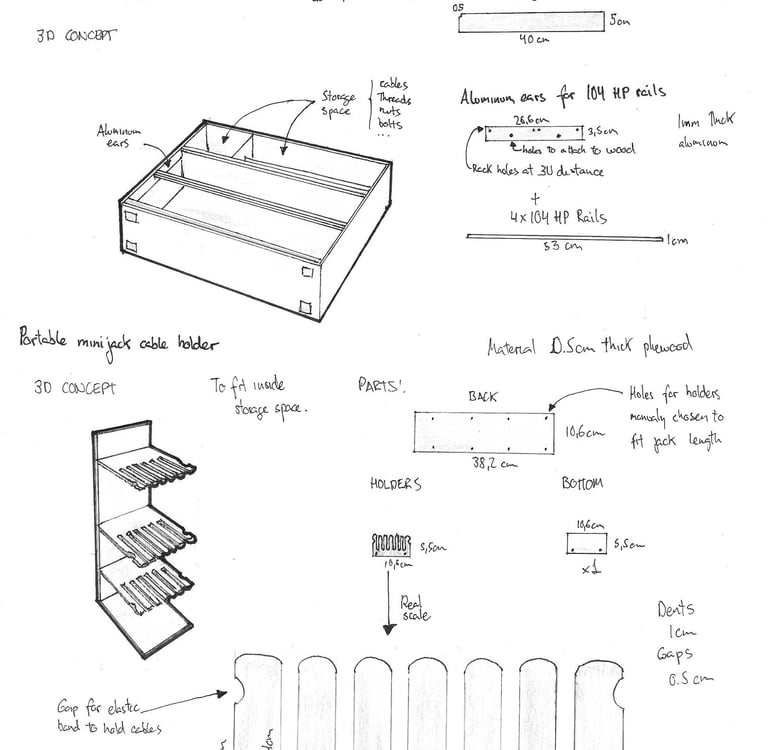 05
5cm
40 cm
3D CONCEPT
Storage
space
cables
Threads
nuts
bolts
...
Aluminum
ears
Aluminum ears for 104 HP rails
26,6cm
3,5cm
1mm thick
aluminom
holes to attach to wood
Rack holes at 3U distance
+
4x104 HP Rails
53 cm
1cm
Portable minijack cable holder
Material 0.5cm thick plewood
3D CONCEPT
To fit inside
storage space.
PARTS:
BACK
Holes for holders
manualy chosen to
fit jack length
10,6cm
38,2 cm
HOLDERS
BOTTOM
5,5cm
10,6cm
10,6cm
5,5cm
x1
Real
scale
Dents
1cm
Gaps
0.5cm
Gap for elastic
band to hold cables